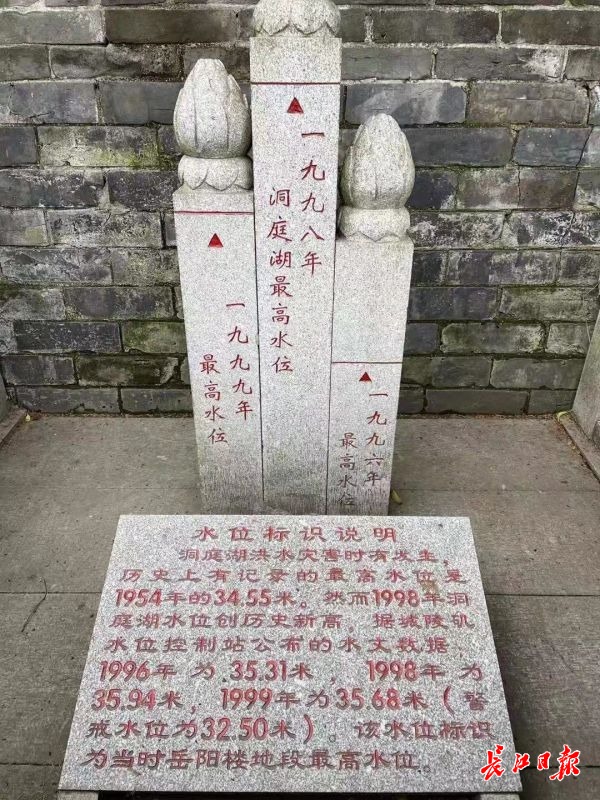 一九九八年
洞庭湖最高水位
一九九九年
最高水位
一九九六年
最高水位
水位标识说明
洞庭湖洪水灾害时有发生，
历史上有记录的最高水位是
1954年的34.55米。然而1998年洞
庭湖水位创历史新高，据城陵矶
水位控制站公布的水文数据，
1996年为35.31米，1998年为
35.94米，1999年为35.68米（警
戒水位为32.50米）。该水位标识
为当时岳阳楼地段最高水位。
长江日报
长江日报